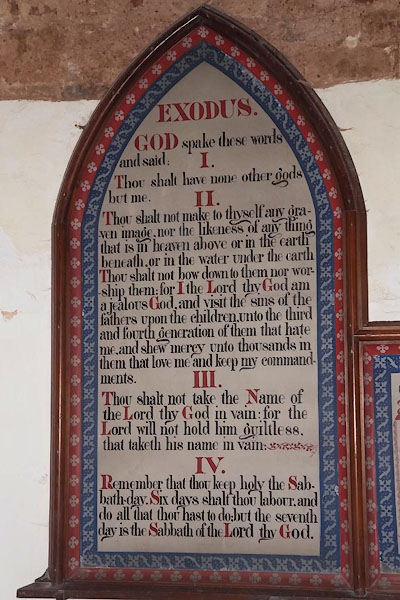 EXODUS.
GOD spake these words
and said: I.
Thou shalt have none other gods
but me.
II.
Thou shalt not make to thyself any gra-
ven image, nor the likeness of any thing
that is in heaven above or in the earth
beneath, or in the water under the earth
Thou shalt not bow down to them nor wor-
ship them: for I the Lord thy God am
a jealous God, and visit the sins of the
fathers upon the children, unto the third
and fourth generation of them that hate
me, and shew mercy unto thousands in
them that love me and keep my command-
ments.
III.
Thou shalt not take the Name of
the Lord thy God in vain: for the
Lord will not hold him guiltless,
that taketh his name in vain:
IV.
Remember that thou keep holy the Sab-
bath-day. Six days shalt thou labour, and
do all that thou hast to do; but the seventh
day is the Sabbath of the Lord thy God.